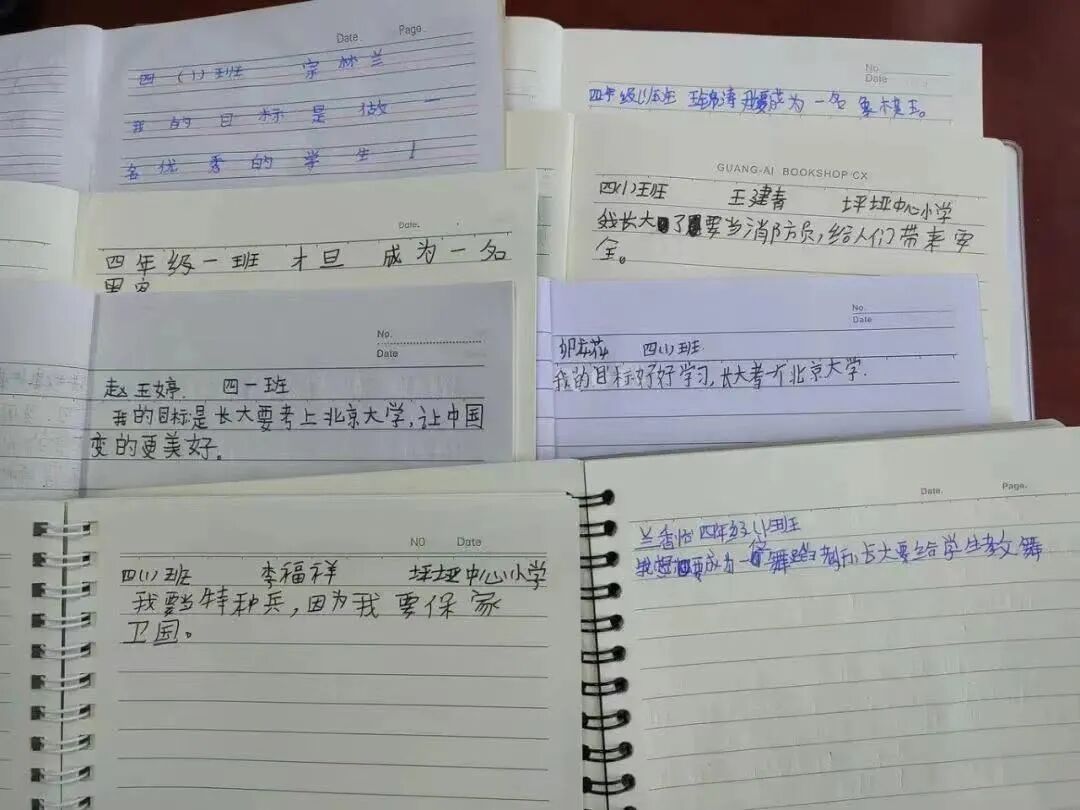 Date. Page.
四（1）班 宗林兰
我的目标是做一
名优秀的学生！
No.
Date
四年级(1)班 成为一名象棋王。
Date.
四年级一班 才旦 成为一名
GUANG-AI BOOKSHOP CX
四(1)班 王建青 坪垭中心小学
我长大了要当消防员，给人们带来安
全。
No.
Date
赵玉婷. 四一班
我的目标是长大要考上北京大学，让中国
变的更美好。
No.
Date
四(1)班
我的目标好好学习，长大考一个北京大学.
NO Date
四(1)班 李福祥 坪垭中心小学
我要当特种兵，因为我要保家
卫国。
Date. Page.
四年级(1)班
成为一名舞蹈老师，长大要给学生教文舞